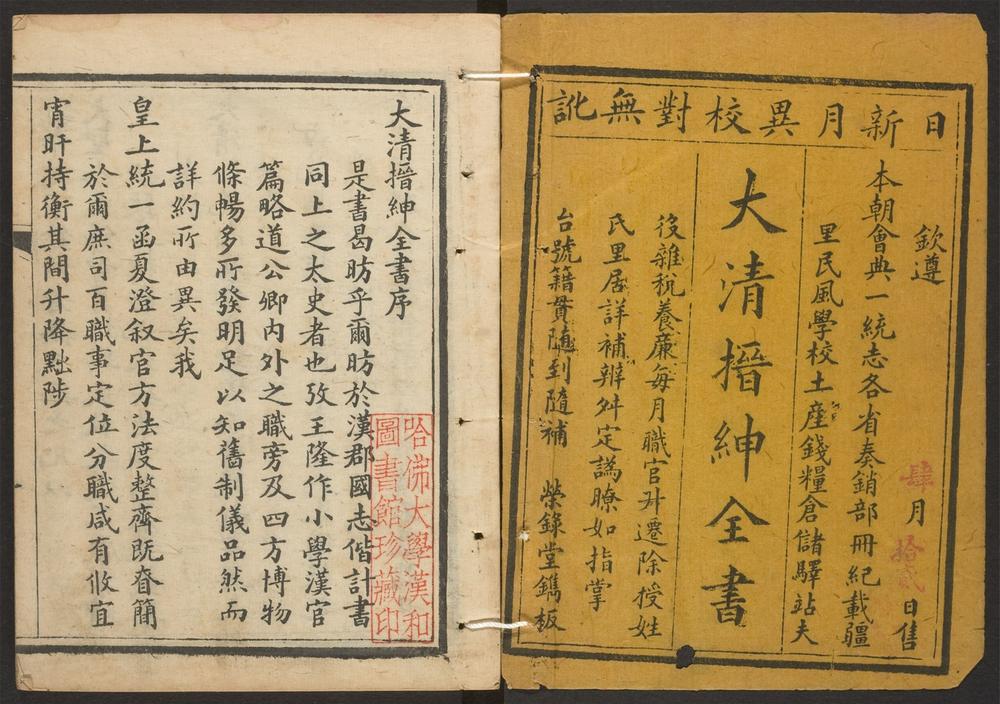 日新月異校對無訛
欽遵
肆月拾貳日售
本朝會典一統志各省奏銷部冊紀載疆
里民風學校土產錢糧倉儲驛站夫
大清搢紳全書
後雜稅養廉每月職官升遷除授姓
氏里居詳補辨舛定譌瞭如指掌
台號籍貫隨到隨補 榮錄堂鐫板
大清搢紳全書序
是書曷昉乎爾昉於漢郡國志偕計書
同上之太史者也攷王隆作小學漢官
篇略道公卿內外之職旁及四方博物
條暢多所發明足以知舊制儀品然而
詳約所由異矣我
皇上統一函夏澄叙官方法度整齊既眘簡
於爾庶司百職事定位分職咸有攸宜
宵旰持衡其間升降黜陟
哈佛大學漢和
圖書館珍藏印